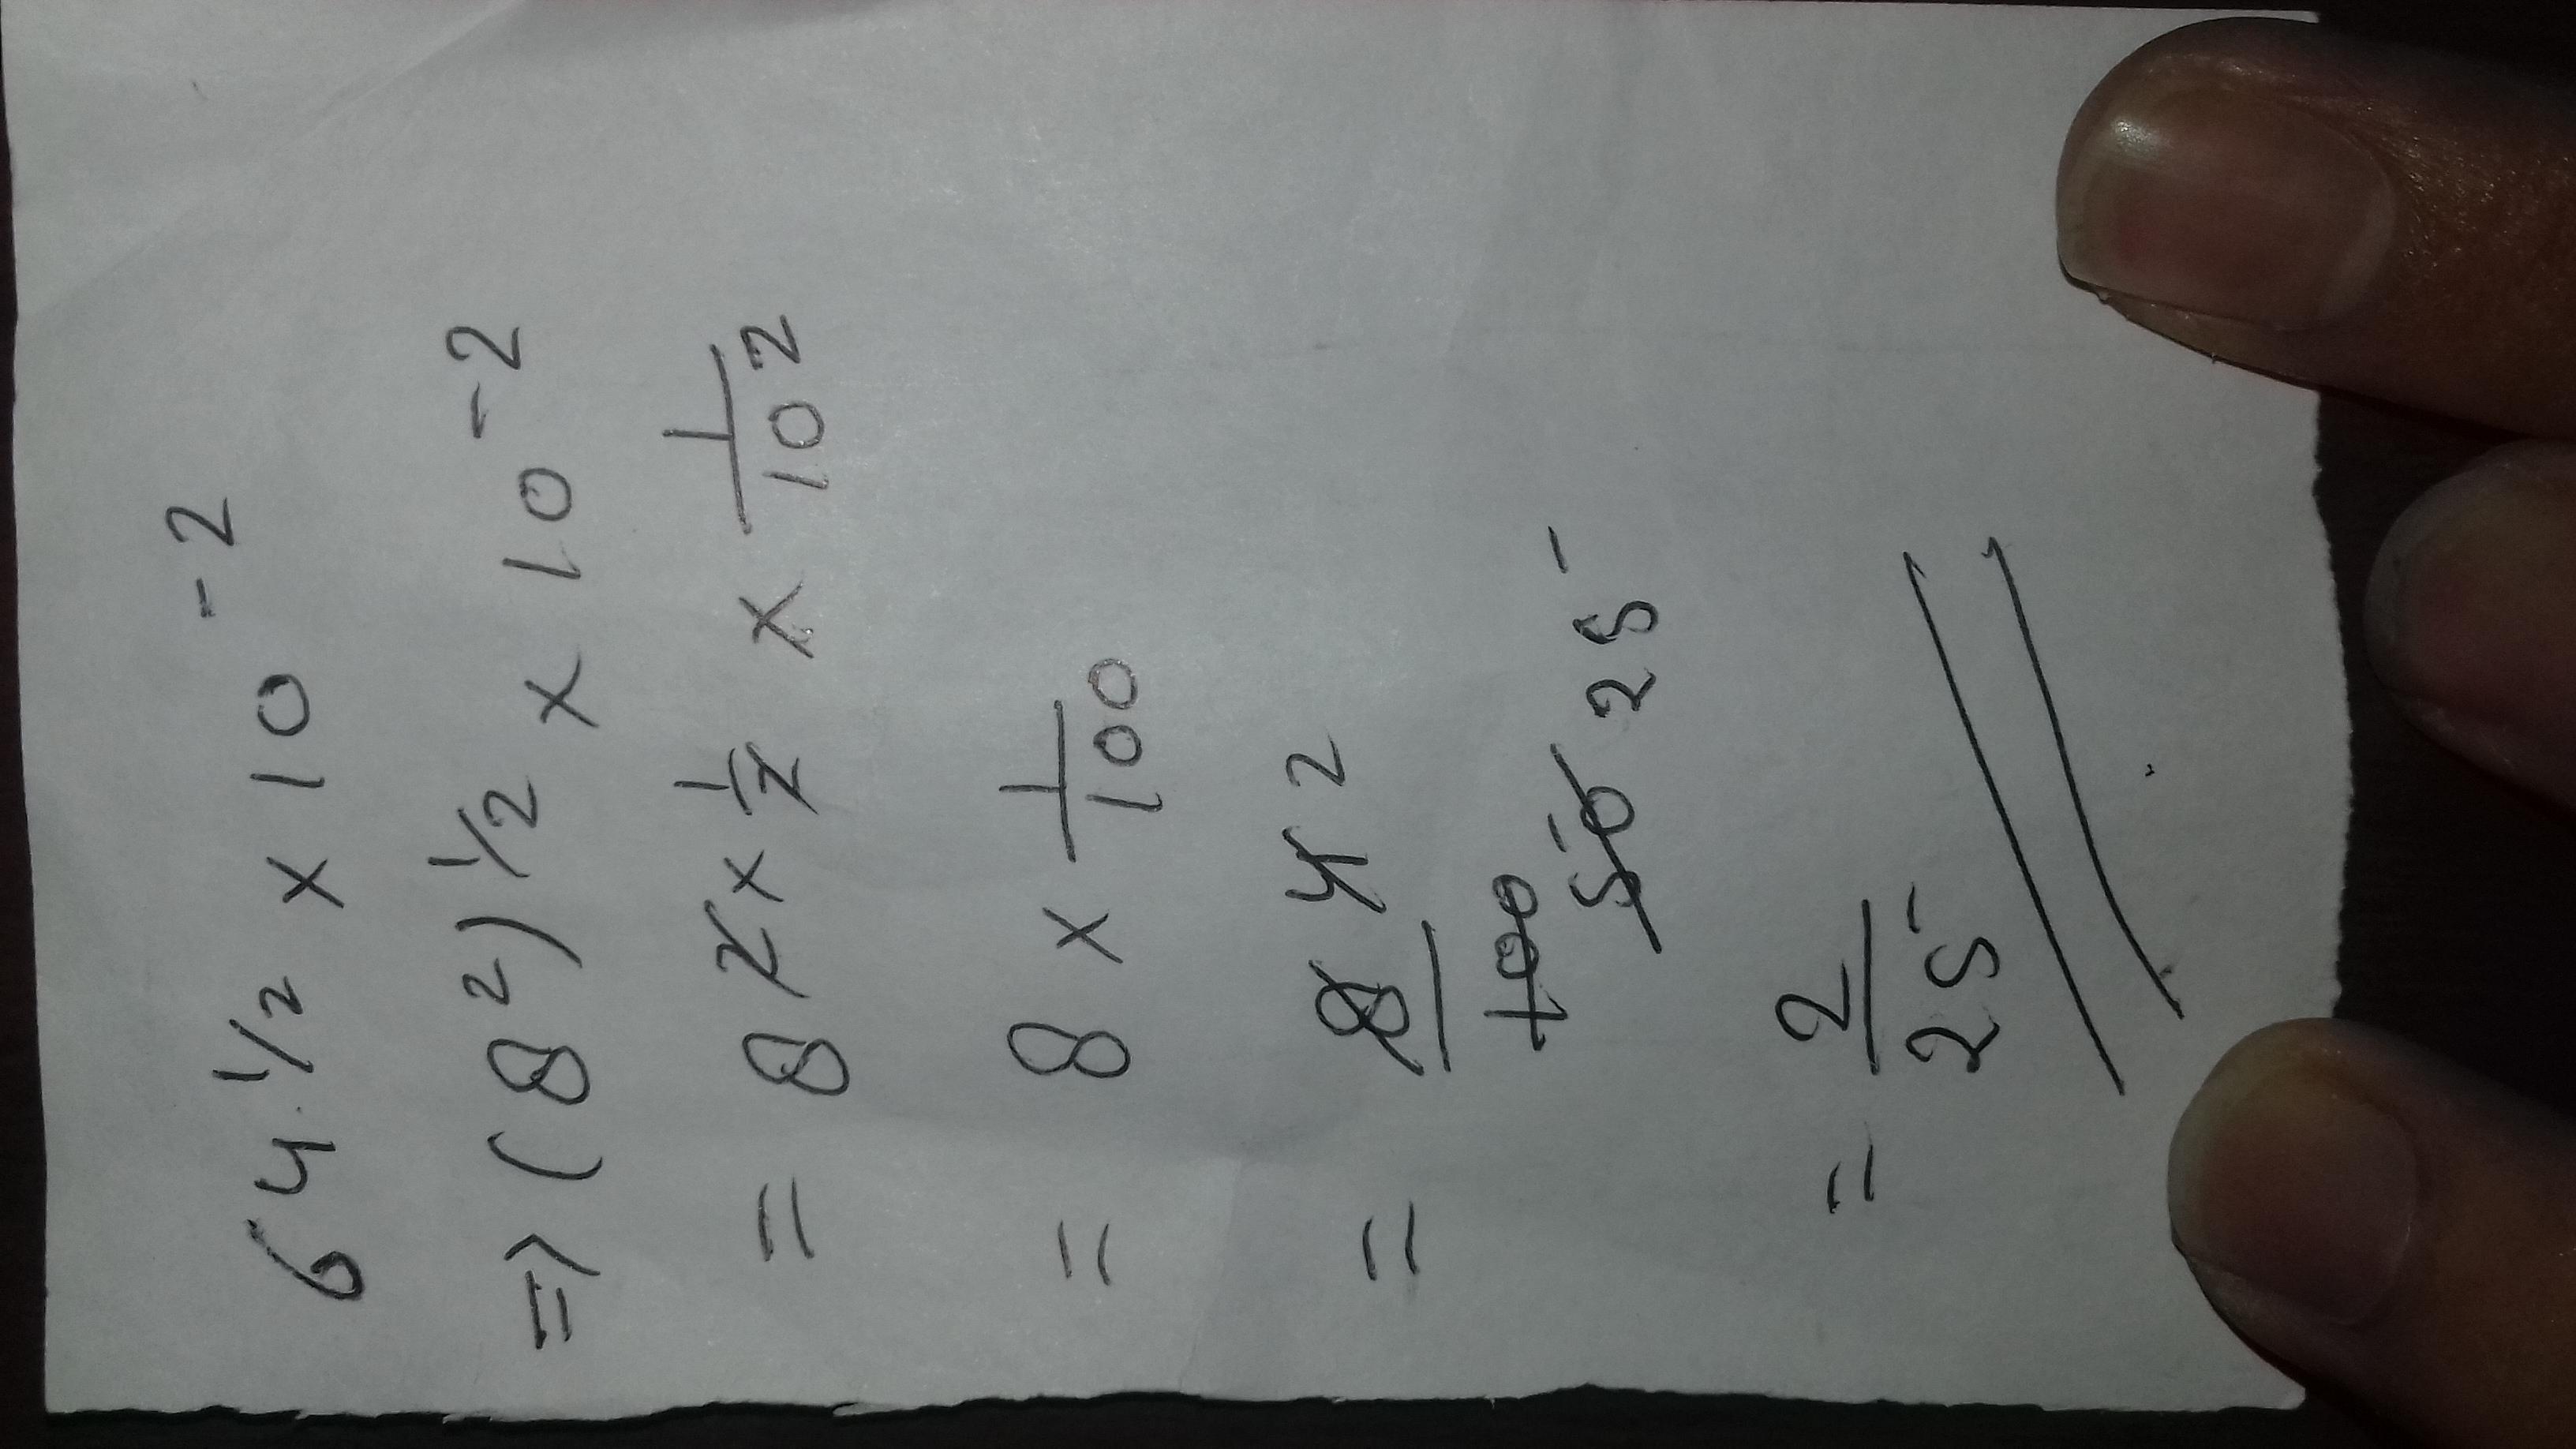 64^1/2 × 10^-2
=> (8^2)^1/2 × 10^-2
= 8^2 × 1/2 × 1/10^2
= 8 × 1/100
= 8 4 2 / 100 50 25
= 2/25